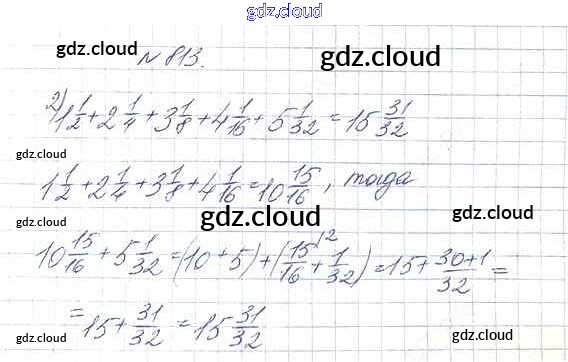 gdz.cloud
gdz.cloud
gdz.cloud
№ 813.
2) 1 1/2 + 2 1/4 + 3 1/8 + 4 1/16 + 5 1/32 = 15 31/32
gdz.cloud
gdz.cloud
1 1/2 + 2 1/4 + 3 1/8 + 4 1/16 = 10 15/16, тогда
gdz.cloud
gdz.cloud
gdz.cloud
10 15/16 + 5 1/32 = (10 + 5) + (15/16 \2 + 1/32) = 15 + 30+1/32 =
= 15 + 31/32 = 15 31/32
gdz.cloud
gdz.cloud
gdz.cloud